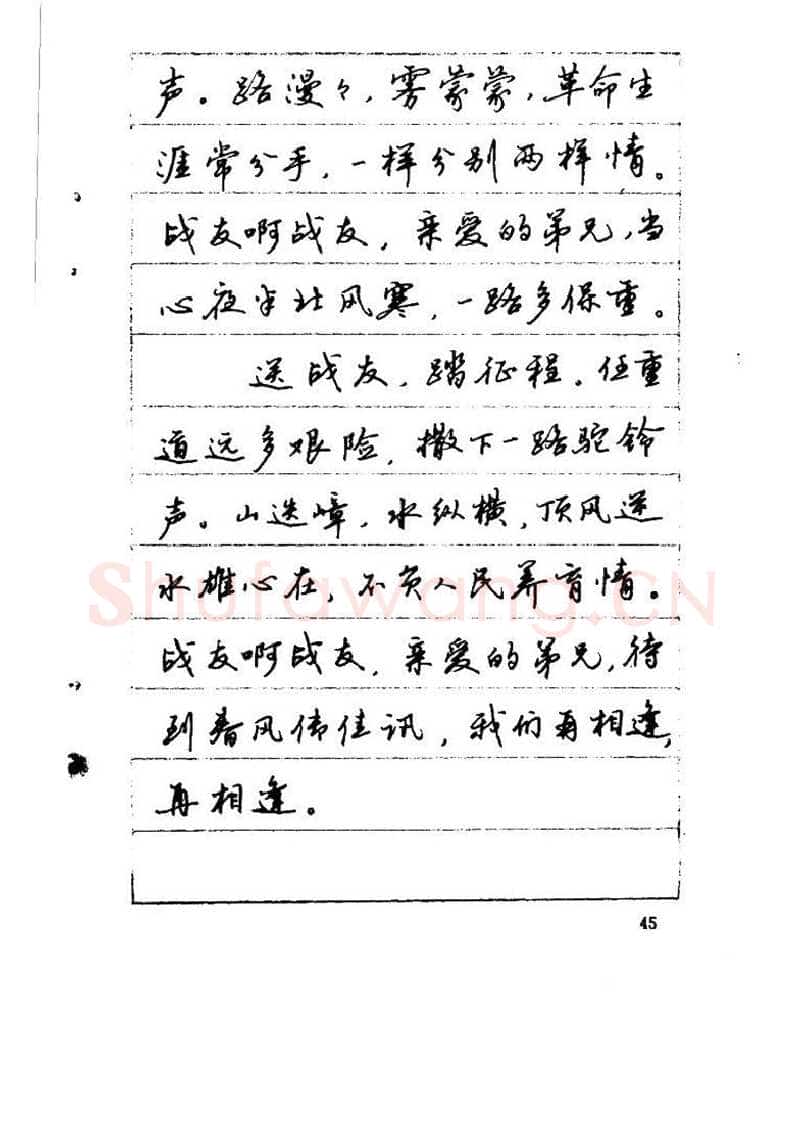 声。路漫々，雾蒙蒙，革命生
涯常分手，一样分别两样情。
战友啊战友，亲爱的弟兄，当
心夜半北风寒，一路多保重。
送战友，踏征程。任重
道远多艰险，撒下一路驼铃
声。山迭嶂，水纵横，顶风逆
水雄心在，不负人民养育情。
战友啊战友，亲爱的弟兄，待
到春风传佳讯，我们再相逢，
再相逢。
Shufawang.CN
45